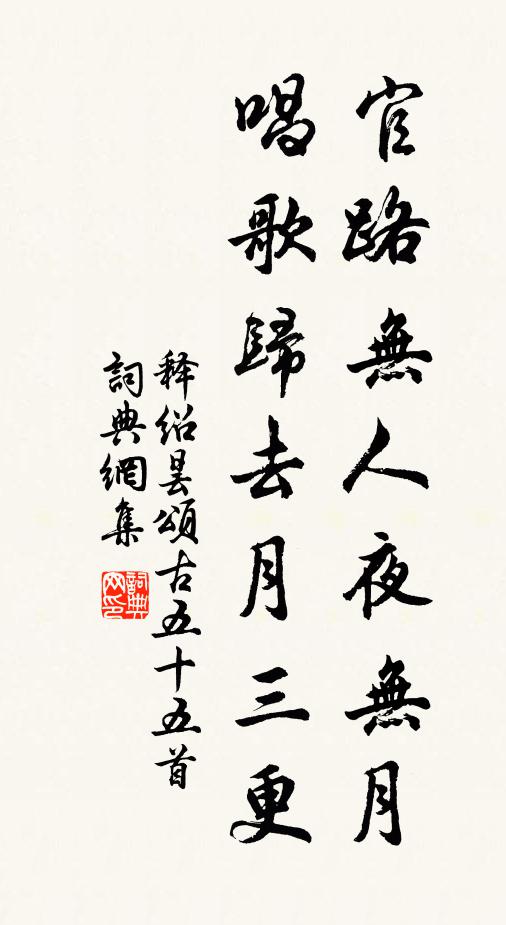 官路無人夜無月
唱歌歸去月三更
释紹曇頌古五十五首
詞典網集
詞典網印